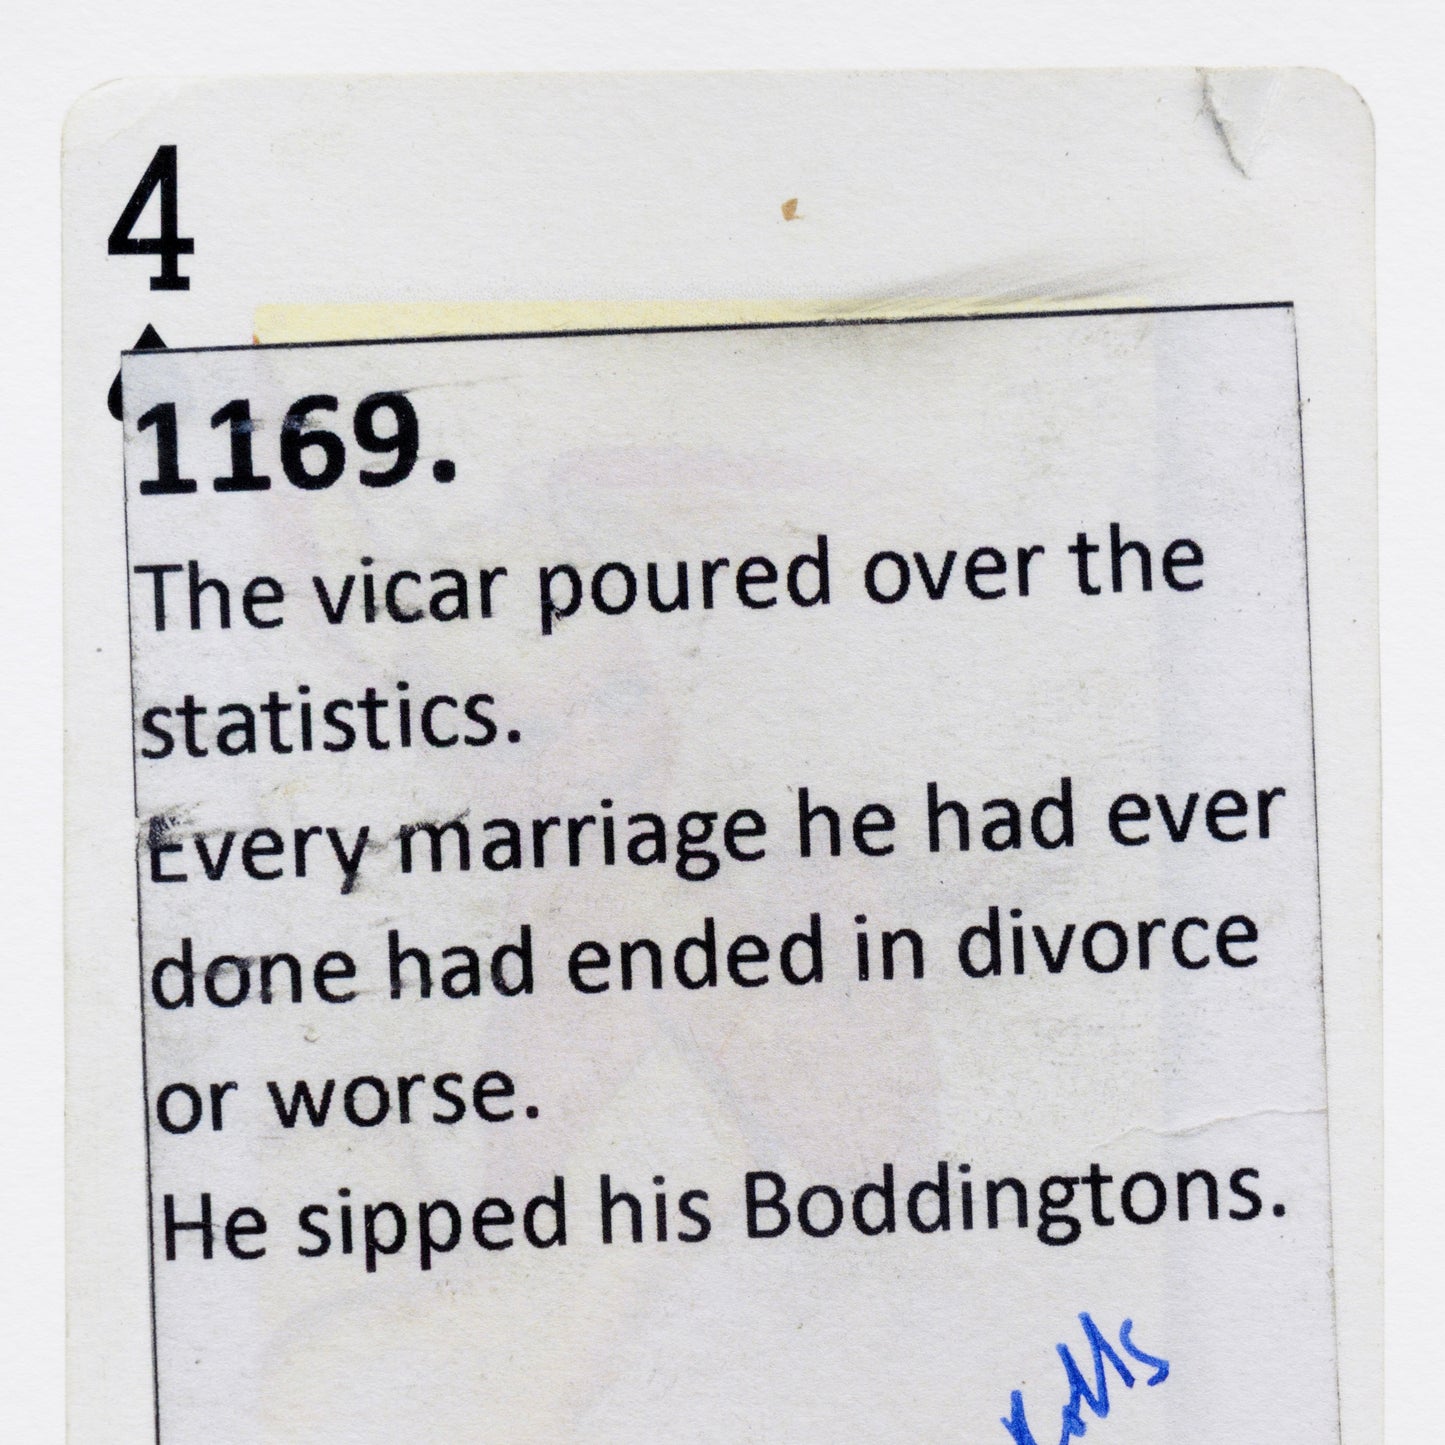 4
1169.
The vicar poured over the
statistics.
Every marriage he had ever
done had ended in divorce
or worse.
He sipped his Boddingtons.